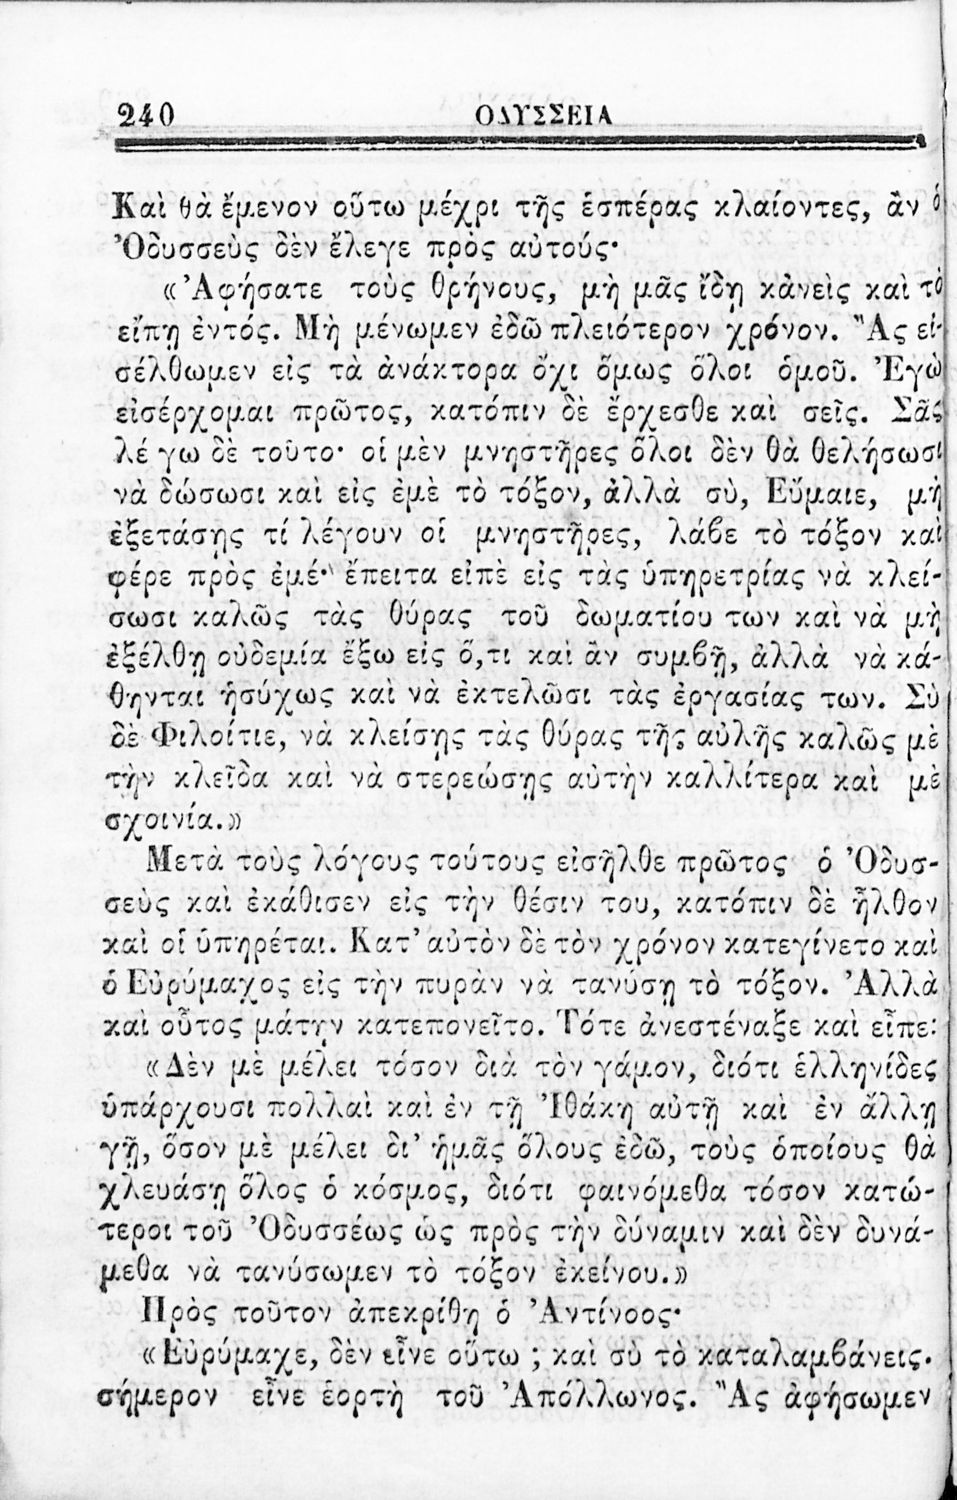 240 ΟΔΥΣΣΕΙΑ
Καὶ θὰ ἔμενον οὕτω μέχρι τῆς ἑσπέρας κλαίοντες, ἂν ὁ
Ὀδυσσεὺς δὲν ἔλεγε πρὸς αὐτούς·
«Ἀφήσατε τοὺς θρήνους, μὴ μᾶς ἴδῃ κἀνεὶς καὶ τὸ
εἴπῃ ἐντός. Μὴ μένωμεν ἐδῶ πλειότερον χρόνον. Ἂς εἰ-
σέλθωμεν εἰς τὰ ἀνάκτορα ὄχι ὅμως ὅλοι ὁμοῦ. Ἐγὼ
εἰσέρχομαι πρῶτος, κατόπιν δὲ ἔρχεσθε καὶ σεῖς. Σᾶς
λέγω δὲ τοῦτο· οἱ μὲν μνηστῆρες ὅλοι δὲν θὰ θελήσωσι
νὰ δώσωσι καὶ εἰς ἐμὲ τὸ τόξον, ἀλλὰ σὺ, Εὔμαιε, μὴ
ἐξετάσῃς τί λέγουν οἱ μνηστῆρες, λάβε τὸ τόξον καὶ
φέρε πρὸς ἐμέ· ἔπειτα εἰπὲ εἰς τὰς ὑπηρετρίας νὰ κλεί-
σωσι καλῶς τὰς θύρας τοῦ δωματίου των καὶ νὰ μὴ
ἐξέλθῃ οὐδεμία ἔξω εἰς ὅ,τι καὶ ἂν συμβῇ, ἀλλὰ νὰ κά-
θηνται ἡσύχως καὶ νὰ ἐκτελῶσι τὰς ἐργασίας των. Σὺ
δὲ Φιλοίτιε, νὰ κλείσῃς τὰς θύρας τῆς αὐλῆς καλῶς μὲ
τὴν κλεῖδα καὶ νὰ στερεώσῃς αὐτὴν καλλίτερα καὶ μὲ
σχοινία.»
Μετὰ τοὺς λόγους τούτους εἰσῆλθε πρῶτος ὁ Ὀδυσ-
σεὺς καὶ ἐκάθισεν εἰς τὴν θέσιν του, κατόπιν δὲ ἦλθον
καὶ οἱ ὑπηρέται. Κατ’ αὐτὸν δὲ τὸν χρόνον κατεγίνετο καὶ
ὁ Εὐρύμαχος εἰς τὴν πυρὰν νὰ τανύσῃ τὸ τόξον. Ἀλλὰ
καὶ οὗτος μάτην κατεπονεῖτο. Τότε ἀνεστέναξε καὶ εἶπε:
«Δὲν μὲ μέλει τόσον διὰ τὸν γάμον, διότι ἑλληνίδες
ὑπάρχουσι πολλαὶ καὶ ἐν τῇ Ἰθάκῃ αὐτῇ καὶ ἐν ἄλλῃ
γῇ, ὅσον μὲ μέλει δι’ ἡμᾶς ὅλους ἐδῶ, τοὺς ὁποίους θὰ
χλευάσῃ ὅλος ὁ κόσμος, διότι φαινόμεθα τόσον κατώ-
τεροι τοῦ Ὀδυσσέως ὡς πρὸς τὴν δύναμιν καὶ δὲν δυνά-
μεθα νὰ τανύσωμεν τὸ τόξον ἐκείνου.»
Πρὸς τοῦτον ἀπεκρίθη ὁ Ἀντίνοος·
«Εὐρύμαχε, δὲν εἶνε οὕτω ; καὶ σὺ τὸ καταλαμβάνεις.
σήμερον εἶνε ἑορτὴ τοῦ Ἀπόλλωνος. Ἂς ἀφήσωμεν